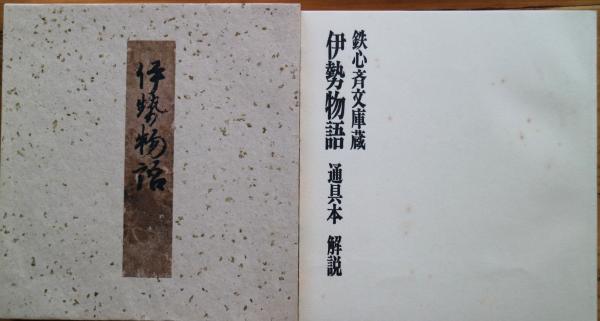 伊勢物語
鉄心斉文庫蔵
伊勢物語 通具本 解説